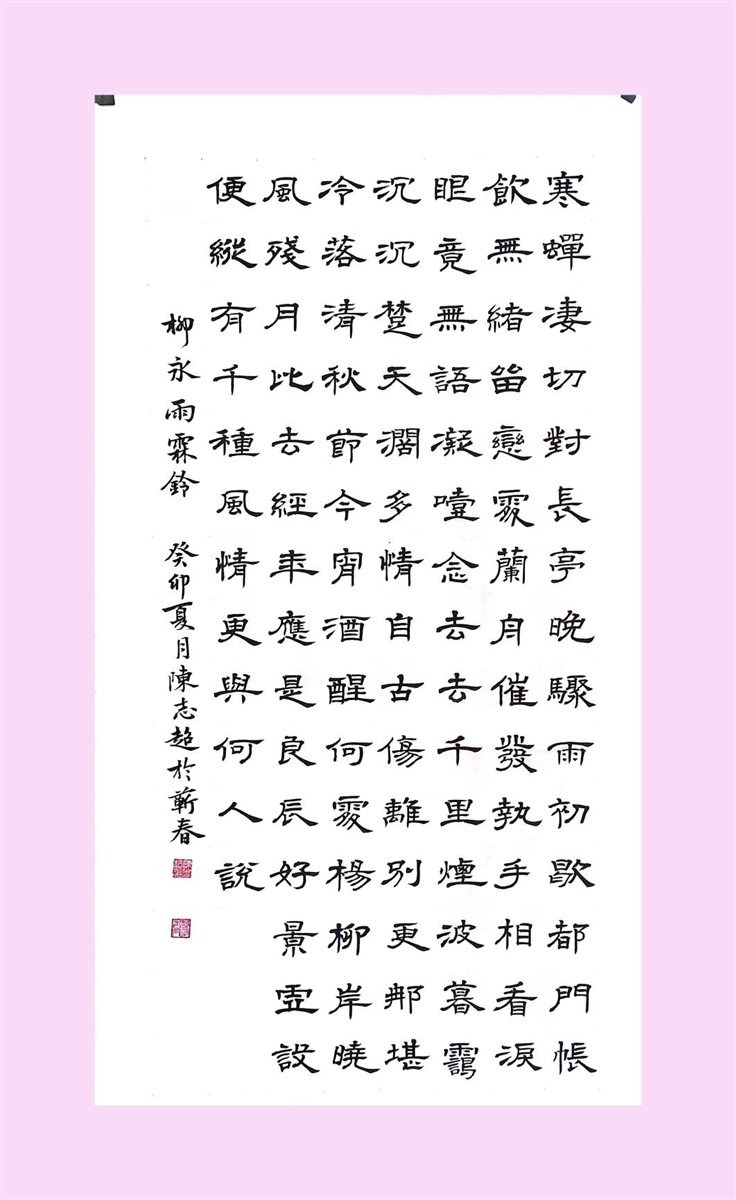 寒蟬凄切對長亭晚驟雨初歇都門帳
飲無緒留戀處蘭舟催發執手相看淚
眼竟無語凝噎念去去千里煙波暮靄
沉沉楚天濶多情自古傷離別更那堪
冷落清秋節今宵酒醒何處楊柳岸曉
風殘月此去經年應是良辰好景虛設
便縱有千種風情更與何人說
柳永雨霖鈴 癸卯夏月陳志超於蘄春